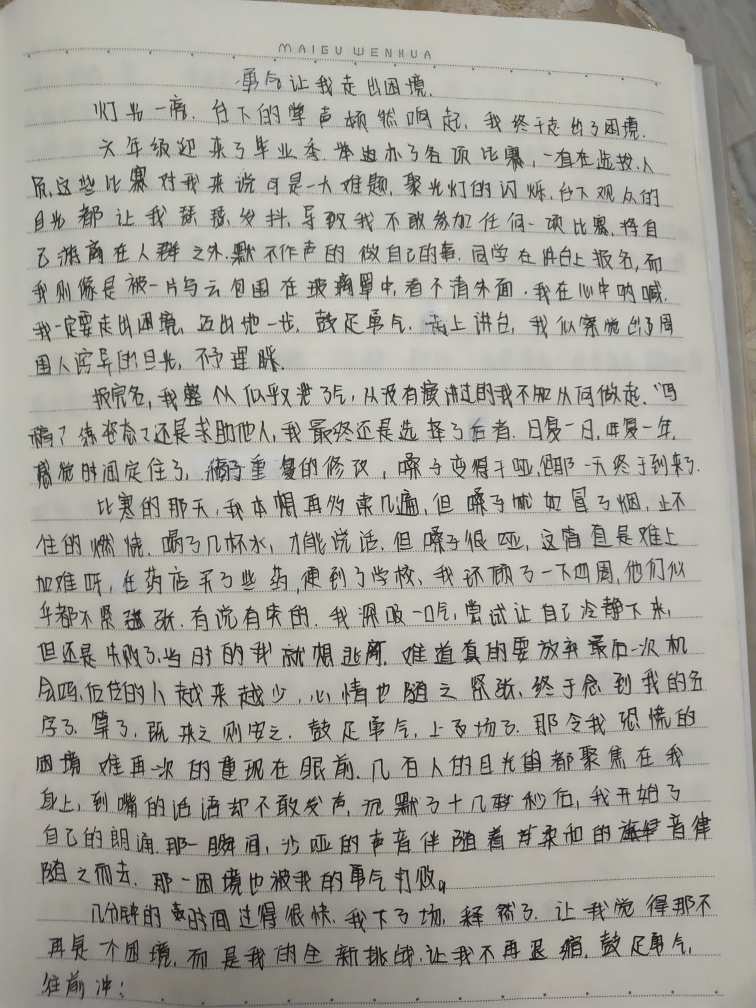 MAIGU WENHUA
勇气让我走出困境.
灯光一亮.台下的掌声顿然响起,我终于走出了困境.
六年级迎来了毕业季.举办了各项比赛,一直在选拔人
员,这些比赛对我来说可是一大难题.聚光灯的闪烁.台下观众的
目光都让我瑟瑟发抖.导致我不敢参加任何一项比赛,将自
己游离在人群之外.默不作声的做自己的事.同学在讲台上报名,而
我则像是被一片乌云包围在玻璃罩中,看不清外面.我在心中呐喊.
我一定要走出困境,迈出他一步.鼓足勇气.走上讲台,我似察觉出了周
围人诧异的目光,不予理睬.
报完名,我整个人似乎又泄了气,从没有演讲过的我不知从何做起.写
稿?练姿态?还是求助他人,我最终还是选择了后者.日复一日,年复一年,
感觉时间定住了,稿子重复的修改,嗓子变得干哑,但那一天终于到来了.
比赛的那天,我本想再多来几遍,但嗓子犹如冒了烟,止不
住的燃烧.喝了几杯水,才能说话.但嗓子很哑,这简直是难上
加难呀,在药店买了些药,便到了学校、我环顾了一下四周,他们似
乎都不紧张.有说有笑的.我深吸一口气,尝试让自己冷静下来,
但还是失败了.当时的我就想逃离.难道真的要放弃最后一次机
会吗.后位的人越来越少,心情也随之紧张.终于念到我的名
字了.算了,既来之则安之.鼓足勇气,上了场了.那令我恐慌的
困境难再一次的重现在眼前.几百人的目光都聚焦在我
身上,到嘴的话语却不敢发声.沉默了十几秒后,我开始了
自己的朗诵.那一瞬间,沙哑的声音伴随着柔和的音律
随之而去.那一困境也被我的勇气打败。
几分钟的时间过得很快.我下了场,释然了.让我觉得那不
再是个困境,而是我的全新挑战.让我不再退缩.鼓足勇气,
往前冲!